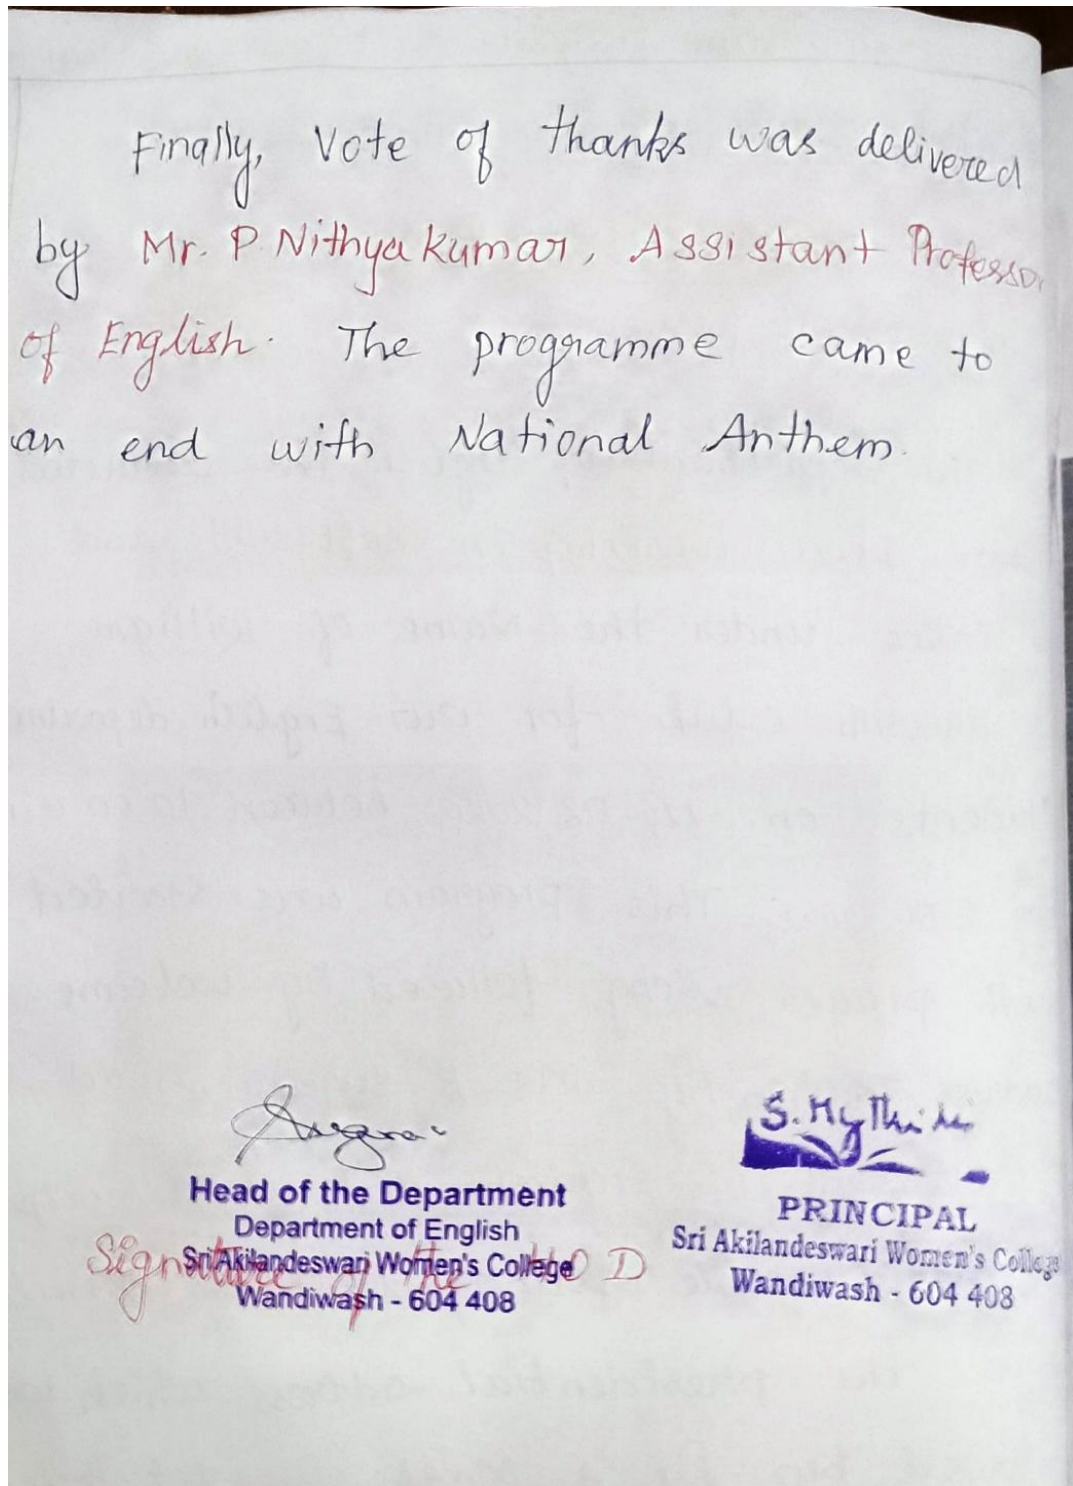 Finally, Vote of thanks was delivered
by Mr. P. Nithyakumar, Assistant Professor
of English. The programme came to
an end with National Anthem.
S. Mythili
Head of the Department
Department of English
Sri Akilandeswari Women's College
Wandiwash - 604 408
Signature of the HOD
PRINCIPAL
Sri Akilandeswari Women's College
Wandiwash - 604 408